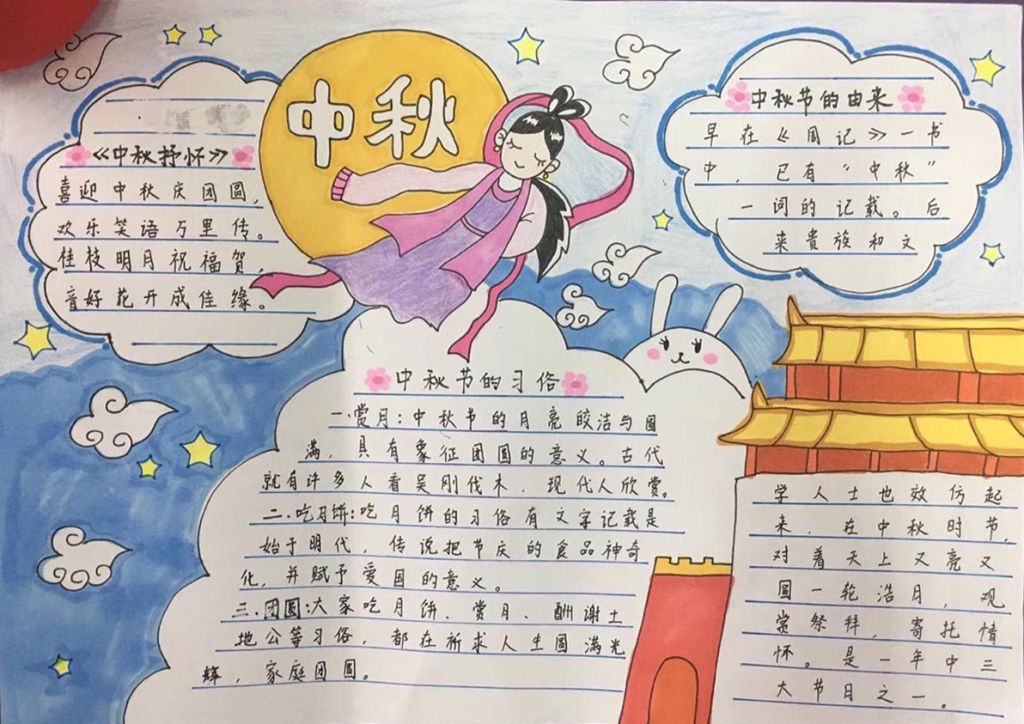 中秋
《中秋抒怀》
喜迎中秋庆团圆,
欢乐笑语万里传。
桂枝明月祝福贺,
音好花开成佳缘。
中秋节的由来
早在《周记》一书
中,已有“中秋”
一词的记载。后
来贵族和文
学人士也效仿起
来,在中秋时节,
对着天上又亮又
圆一轮浩月,观
赏祭拜,寄托情
怀。是一年中三
大节日之一。
中秋节的习俗
一.赏月:中秋节的月亮皎洁与圆
满,具有象征团圆的意义。古代
就有许多人看吴刚伐木,现代人欣赏。
二.吃月饼:吃月饼的习俗有文字记载是
始于明代,传说把节庆的食品神奇
化,并赋予爱国的意义。
三.团圆:大家吃月饼、赏月、酬谢土
地公等习俗,都在祈求人生圆满光
辉,家庭团圆。